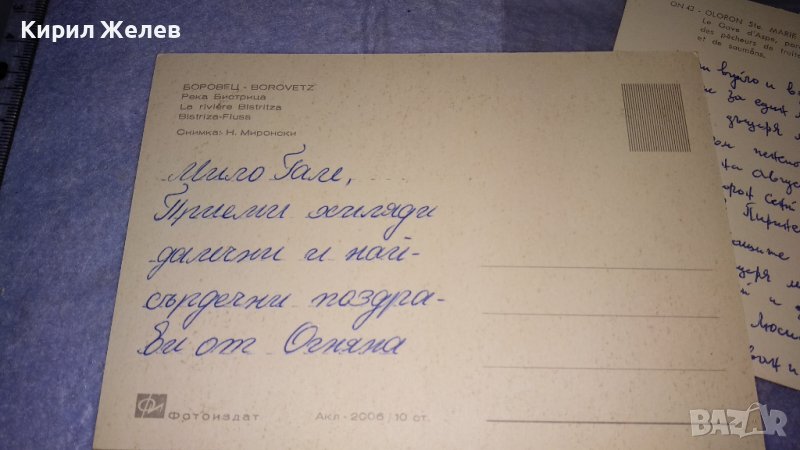 Кирил Желев
БОРОВЕЦ - BOROVETZ
Река Бистрица
Le rivière Bistritza
Bistriza-Fluss
Снимка: Н. Миронски
Мило Гале,
Приеми хиляди
далечни и най-
сърдечни поздра-
ви от Огняна
Фотоиздат
Акл - 2006 / 10 ст.
ON 43 - OLORON Ste. MARIE
Le Gave d'Aspe,
des pêcheurs de truite
et de saumons.
вуйчо и в
за един
дъщеря
на Август
Пирине
BAZAR